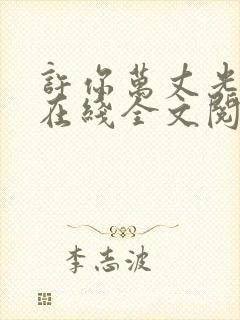 許你萬丈光
在綫全文閱
李志波